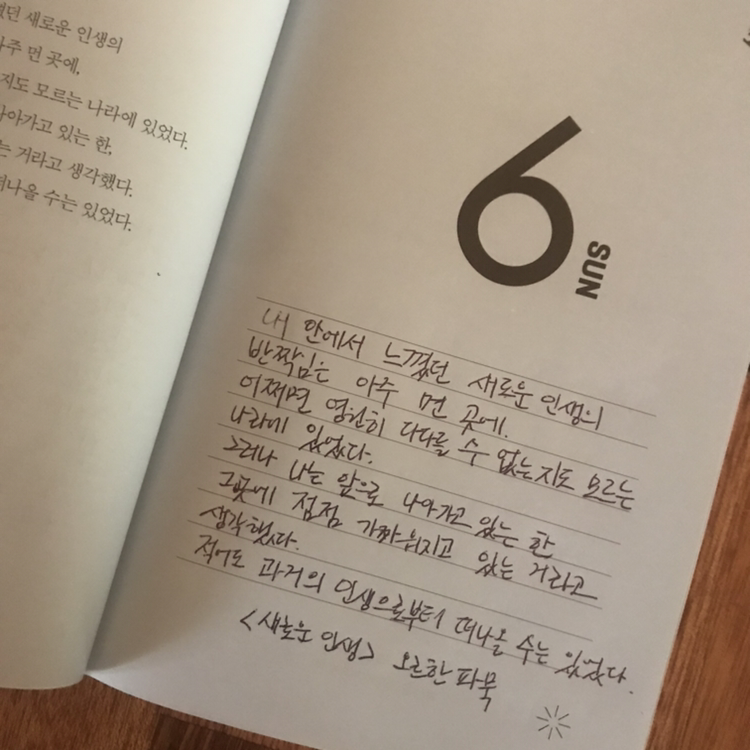 꼈던 새로운 인생의
아주 먼 곳에,
지도 모르는 나라에 있었다.
나아가고 있는 한,
는 거라고 생각했다.
떠나올 수는 있었다.
6
SUN
내 안에서 느꼈던 새로운 인생의
반짝임은 아주 먼 곳에.
어쩌면 영원히 다다를 수 없는지도 모르는
나라에 있었다.
그러나 나는 앞으로 나아가고 있는 한
그곳에 점점 가까워지고 있는 거라고
생각했다.
적어도 과거의 인생으로부터 떠나올 수는 있었다.
<새로운 인생> 오르한 파묵